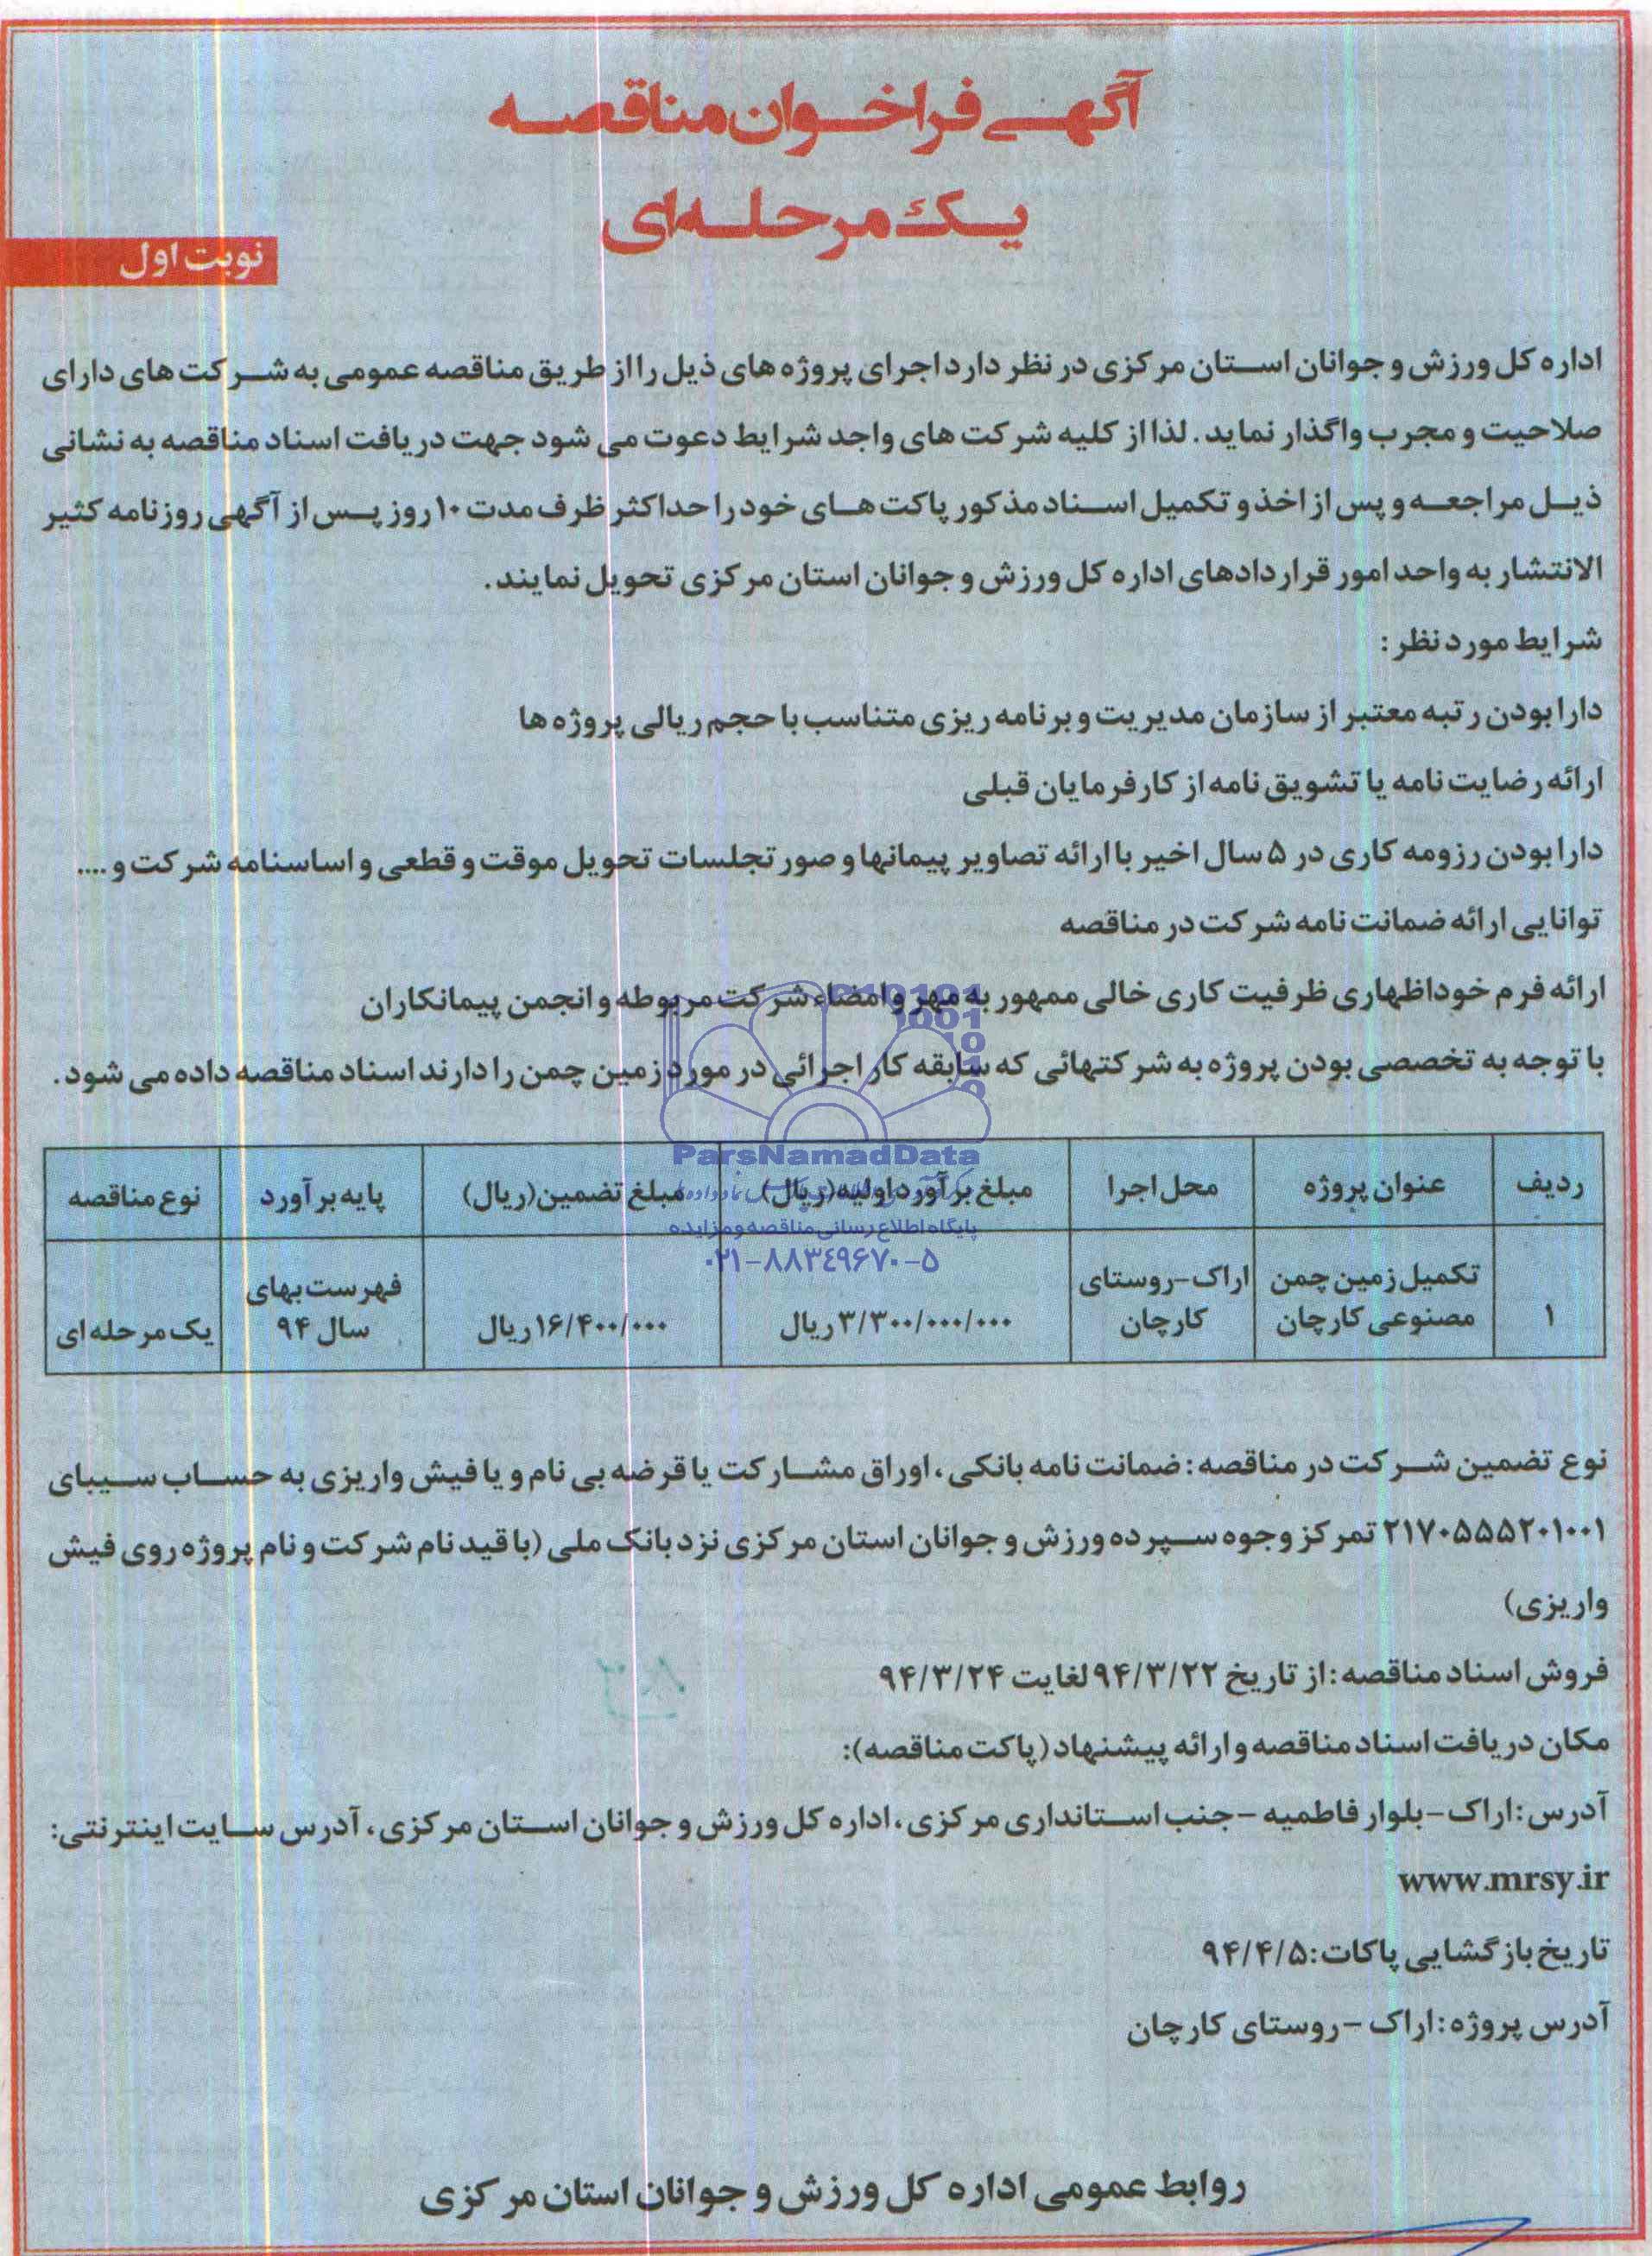 آگهی فراخوان مناقصه
یک مرحله‌ای
نوبت اول
اداره کل ورزش و جوانان استان مرکزی در نظر دارد اجرای پروژه های ذیل را از طریق مناقصه عمومی به شرکت های دارای
صلاحیت و مجرب واگذار نماید. لذا از کلیه شرکت های واجد شرایط دعوت می شود جهت دریافت اسناد مناقصه به نشانی
ذیل مراجعه و پس از اخذ و تکمیل اسناد مذکور پاکت های خود را حداکثر ظرف مدت ۱۰ روز پس از آگهی روزنامه کثیر
الانتشار به واحد امور قراردادهای اداره کل ورزش و جوانان استان مرکزی تحویل نمایند.
شرایط مورد نظر:
دارا بودن رتبه معتبر از سازمان مدیریت و برنامه ریزی متناسب با حجم ریالی پروژه ها
ارائه رضایت نامه یا تشویق نامه از کارفرمایان قبلی
دارا بودن رزومه کاری در ۵ سال اخیر با ارائه تصاویر پیمانها و صورتجلسات تحویل موقت و قطعی و اساسنامه شرکت و ....
توانایی ارائه ضمانت نامه شرکت در مناقصه
ارائه فرم خوداظهاری ظرفیت کاری خالی ممهور به مهر و امضاء شرکت مربوطه و انجمن پیمانکاران
با توجه به تخصصی بودن پروژه به شرکتهائی که سابقه کار اجرائی در مورد زمین چمن را دارند اسناد مناقصه داده می شود.
ParsNamadData
ردیف عنوان پروژه محل اجرا مبلغ برآورد اولیه(ریال) مبلغ تضمین(ریال) پایه برآورد نوع مناقصه
پایگاه اطلاع رسانی مناقصه و مزایده
۰۲۱-۸۸۳۴۹۶۷۰-۵
۱ تکمیل زمین چمن مصنوعی کارچان اراک-روستای کارچان ۳/۳۰۰/۰۰۰/۰۰۰ ریال ۱۶/۴۰۰/۰۰۰ ریال فهرست بهای سال ۹۴ یک مرحله ای
نوع تضمین شرکت در مناقصه: ضمانت نامه بانکی، اوراق مشارکت یا قرضه بی نام و یا فیش واریزی به حساب سیبای
۲۱۷۰۵۵۵۲۰۱۰۰۱ تمرکز وجوه سپرده ورزش و جوانان استان مرکزی نزد بانک ملی (با قید نام شرکت و نام پروژه روی فیش
واریزی)
فروش اسناد مناقصه: از تاریخ ۹۴/۳/۲۲ لغایت ۹۴/۳/۲۴
مکان دریافت اسناد مناقصه و ارائه پیشنهاد (پاکت مناقصه):
آدرس: اراک-بلوار فاطمیه -جنب استانداری مرکزی، اداره کل ورزش و جوانان استان مرکزی، آدرس سایت اینترنتی:
www.mrsy.ir
تاریخ بازگشایی پاکات: ۹۴/۴/۵
آدرس پروژه: اراک -روستای کارچان
روابط عمومی اداره کل ورزش و جوانان استان مرکزی